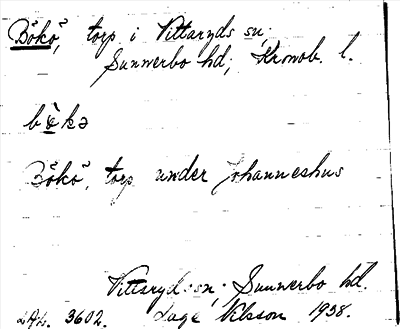 Bökö, torp i Vittaryds sn;
Sunnerbo hd; Kronob. l.
bö̀kə
Bökö, torp under Johanneshus
Vittaryd sn; Sunnerbo hd.
LAL. 3602. Sage Nilsson 1938.